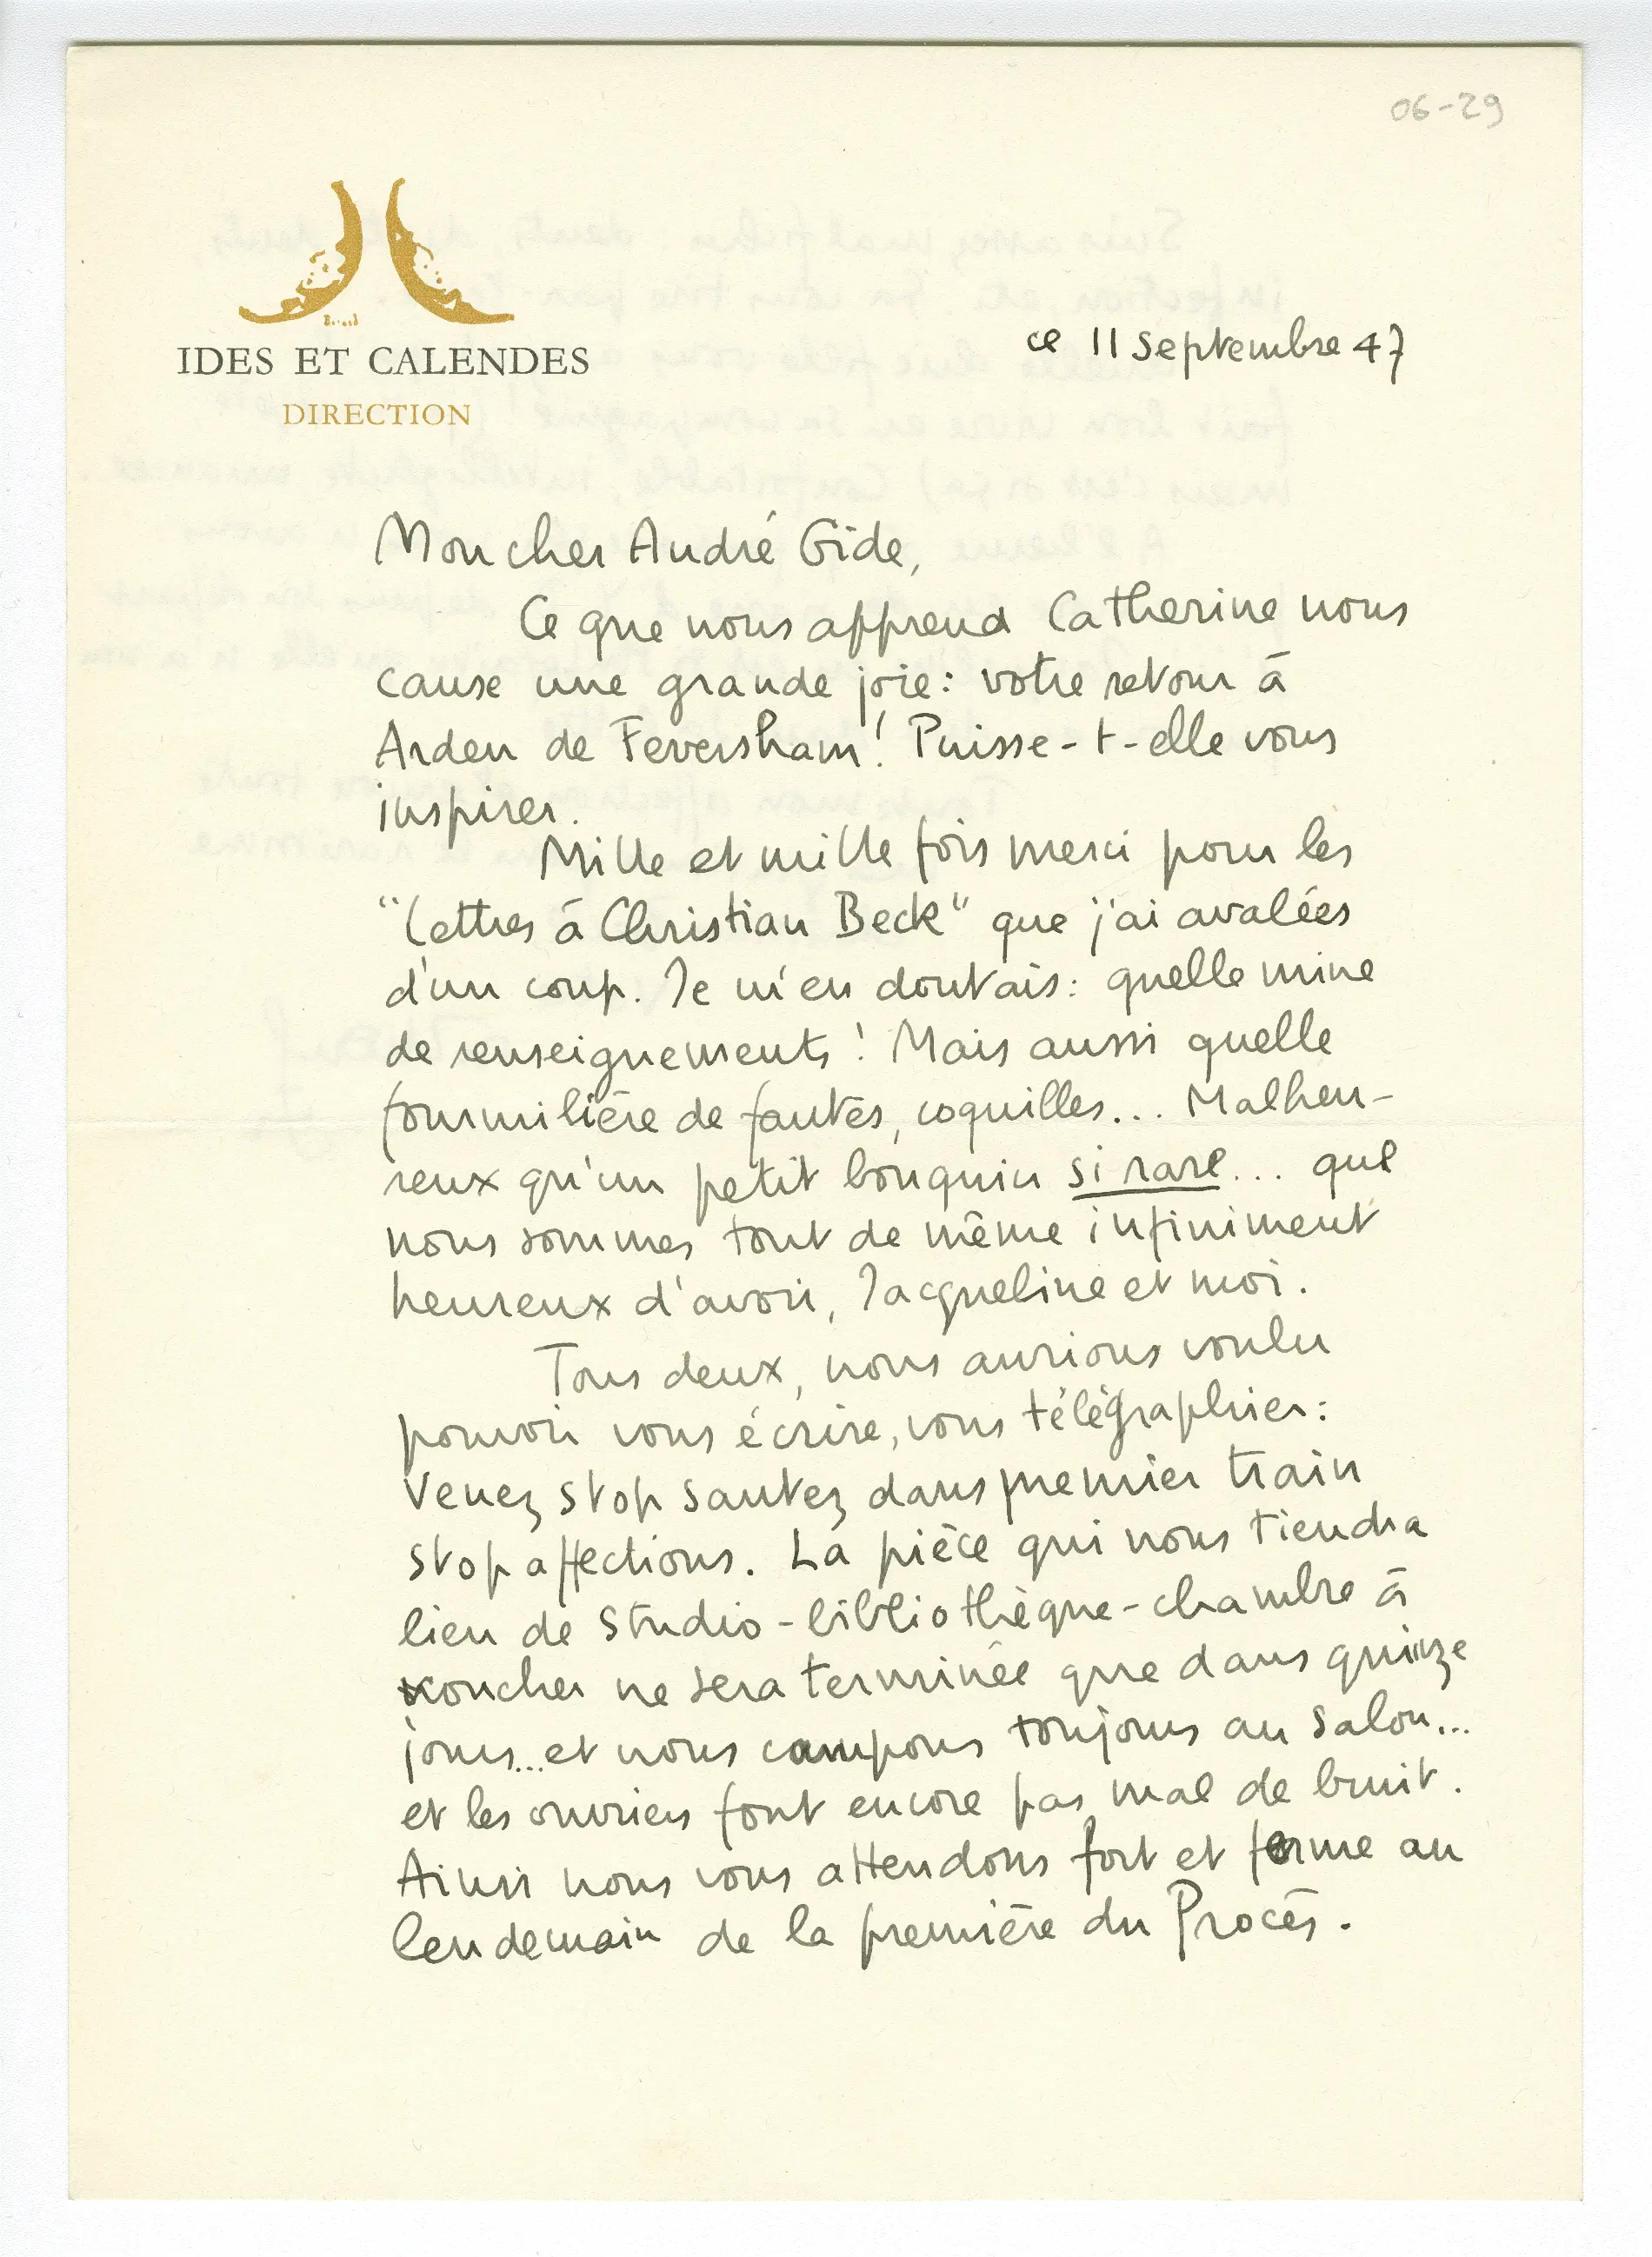 06-29
IDES ET CALENDES
DIRECTION
ce 11 septembre 47
Mon cher André Gide,
Ce que nous apprend Catherine nous
cause une grande joie: votre retour à
Arden de Feversham! Puisse-t-elle vous
inspirer.
Mille et mille fois merci pour les
"Lettres à Christian Beck" que j'ai avalées
d'un coup. Je m'en doutais: quelle mine
de renseignements! Mais aussi quelle
fourmilière de fautes, coquilles... Malheu-
reux qu'un petit bouquin si rare... que
nous sommes tout de même infiniment
heureux d'avoir, Jacqueline et moi.
Tous deux, nous aurions voulu
pouvoir vous écrire, vous télégraphier:
Venez stop sautez dans premier train
stop affections. La pièce qui nous tiendra
lieu de studio-bibliothèque-chambre à
coucher ne sera terminée que dans quinze
jours... et nous campons toujours au salon...
et les ouvriers font encore pas mal de bruit.
Ainsi nous vous attendons fort et ferme au
lendemain de la première du Procès.